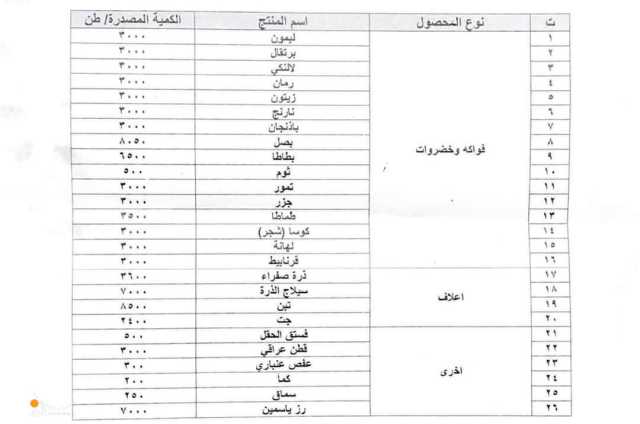 ت نوع المحصول اسم المنتج الكمية المصدرة/ طن
١ فواكه وخضروات ليمون ٣٠٠٠
٢ برتقال ٣٠٠٠
٣ لالنكي ٣٠٠٠
٤ رمان ٣٠٠٠
٥ زيتون ٣٠٠٠
٦ نارنج ٣٠٠٠
٧ باذنجان ٣٠٠٠
٨ بصل ٨٠٥٠
٩ بطاطا ٦٥٠٠
١٠ ثوم ٥٠٠
١١ تمور ٣٠٠٠
١٢ جزر ٣٠٠٠
١٣ طماطا ٣٥٠٠
١٤ كوسا (شجر) ٣٠٠٠
١٥ لهانة ٣٠٠٠
١٦ قرنابيط ٣٠٠٠
١٧ اعلاف ذرة صفراء ٣٦٠٠
١٨ سيلاج الذرة ٧٠٠٠
١٩ تبن ٨٥٠٠
٢٠ جت ٢٤٠٠
٢١ اخرى فستق الحقل ٥٠٠
٢٢ قطن عراقي ٣٠٠٠
٢٣ عفص عنباري ٣٠٠
٢٤ كما ٢٠٠
٢٥ سماق ٢٥٠
٢٦ رز ياسمين ٧٠٠٠